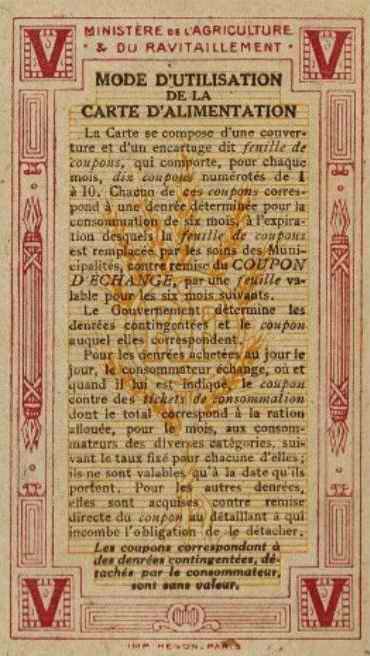 V MINISTÈRE DE L'AGRICULTURE V
& DU RAVITAILLEMENT
MODE D'UTILISATION
DE LA
CARTE D'ALIMENTATION
La Carte se compose d'une couver-
ture et d'un encartage dit feuille de
coupons, qui comporte, pour chaque
mois, dix coupons numérotés de 1
à 10. Chacun de ces coupons corres-
pond à une denrée déterminée pour la
consommation de six mois, à l'expira-
tion desquels la feuille de coupons
est remplacée par les soins des Muni-
cipalités, contre remise du COUPON
D'ECHANGE, par une feuille va-
lable pour les six mois suivants.
Le Gouvernement détermine les
denrées contingentées et le coupon
auquel elles correspondent.
Pour les denrées achetées au jour le
jour, le consommateur échange, où et
quand il lui est indiqué, le coupon
contre des tickets de consommation
dont le total correspond à la ration
allouée, pour le mois, aux consom-
mateurs des diverses catégories, sui-
vant le taux fixé pour chacune d'elles ;
ils ne sont valables qu'à la date qu'ils
portent. Pour les autres denrées,
elles sont acquises contre remise
directe du coupon au détaillant à qui
incombe l'obligation de le détacher.
Les coupons correspondant à
des denrées contingentées, dé-
tachés par le consommateur,
sont sans valeur.
V V
IMP. HENON, PARIS